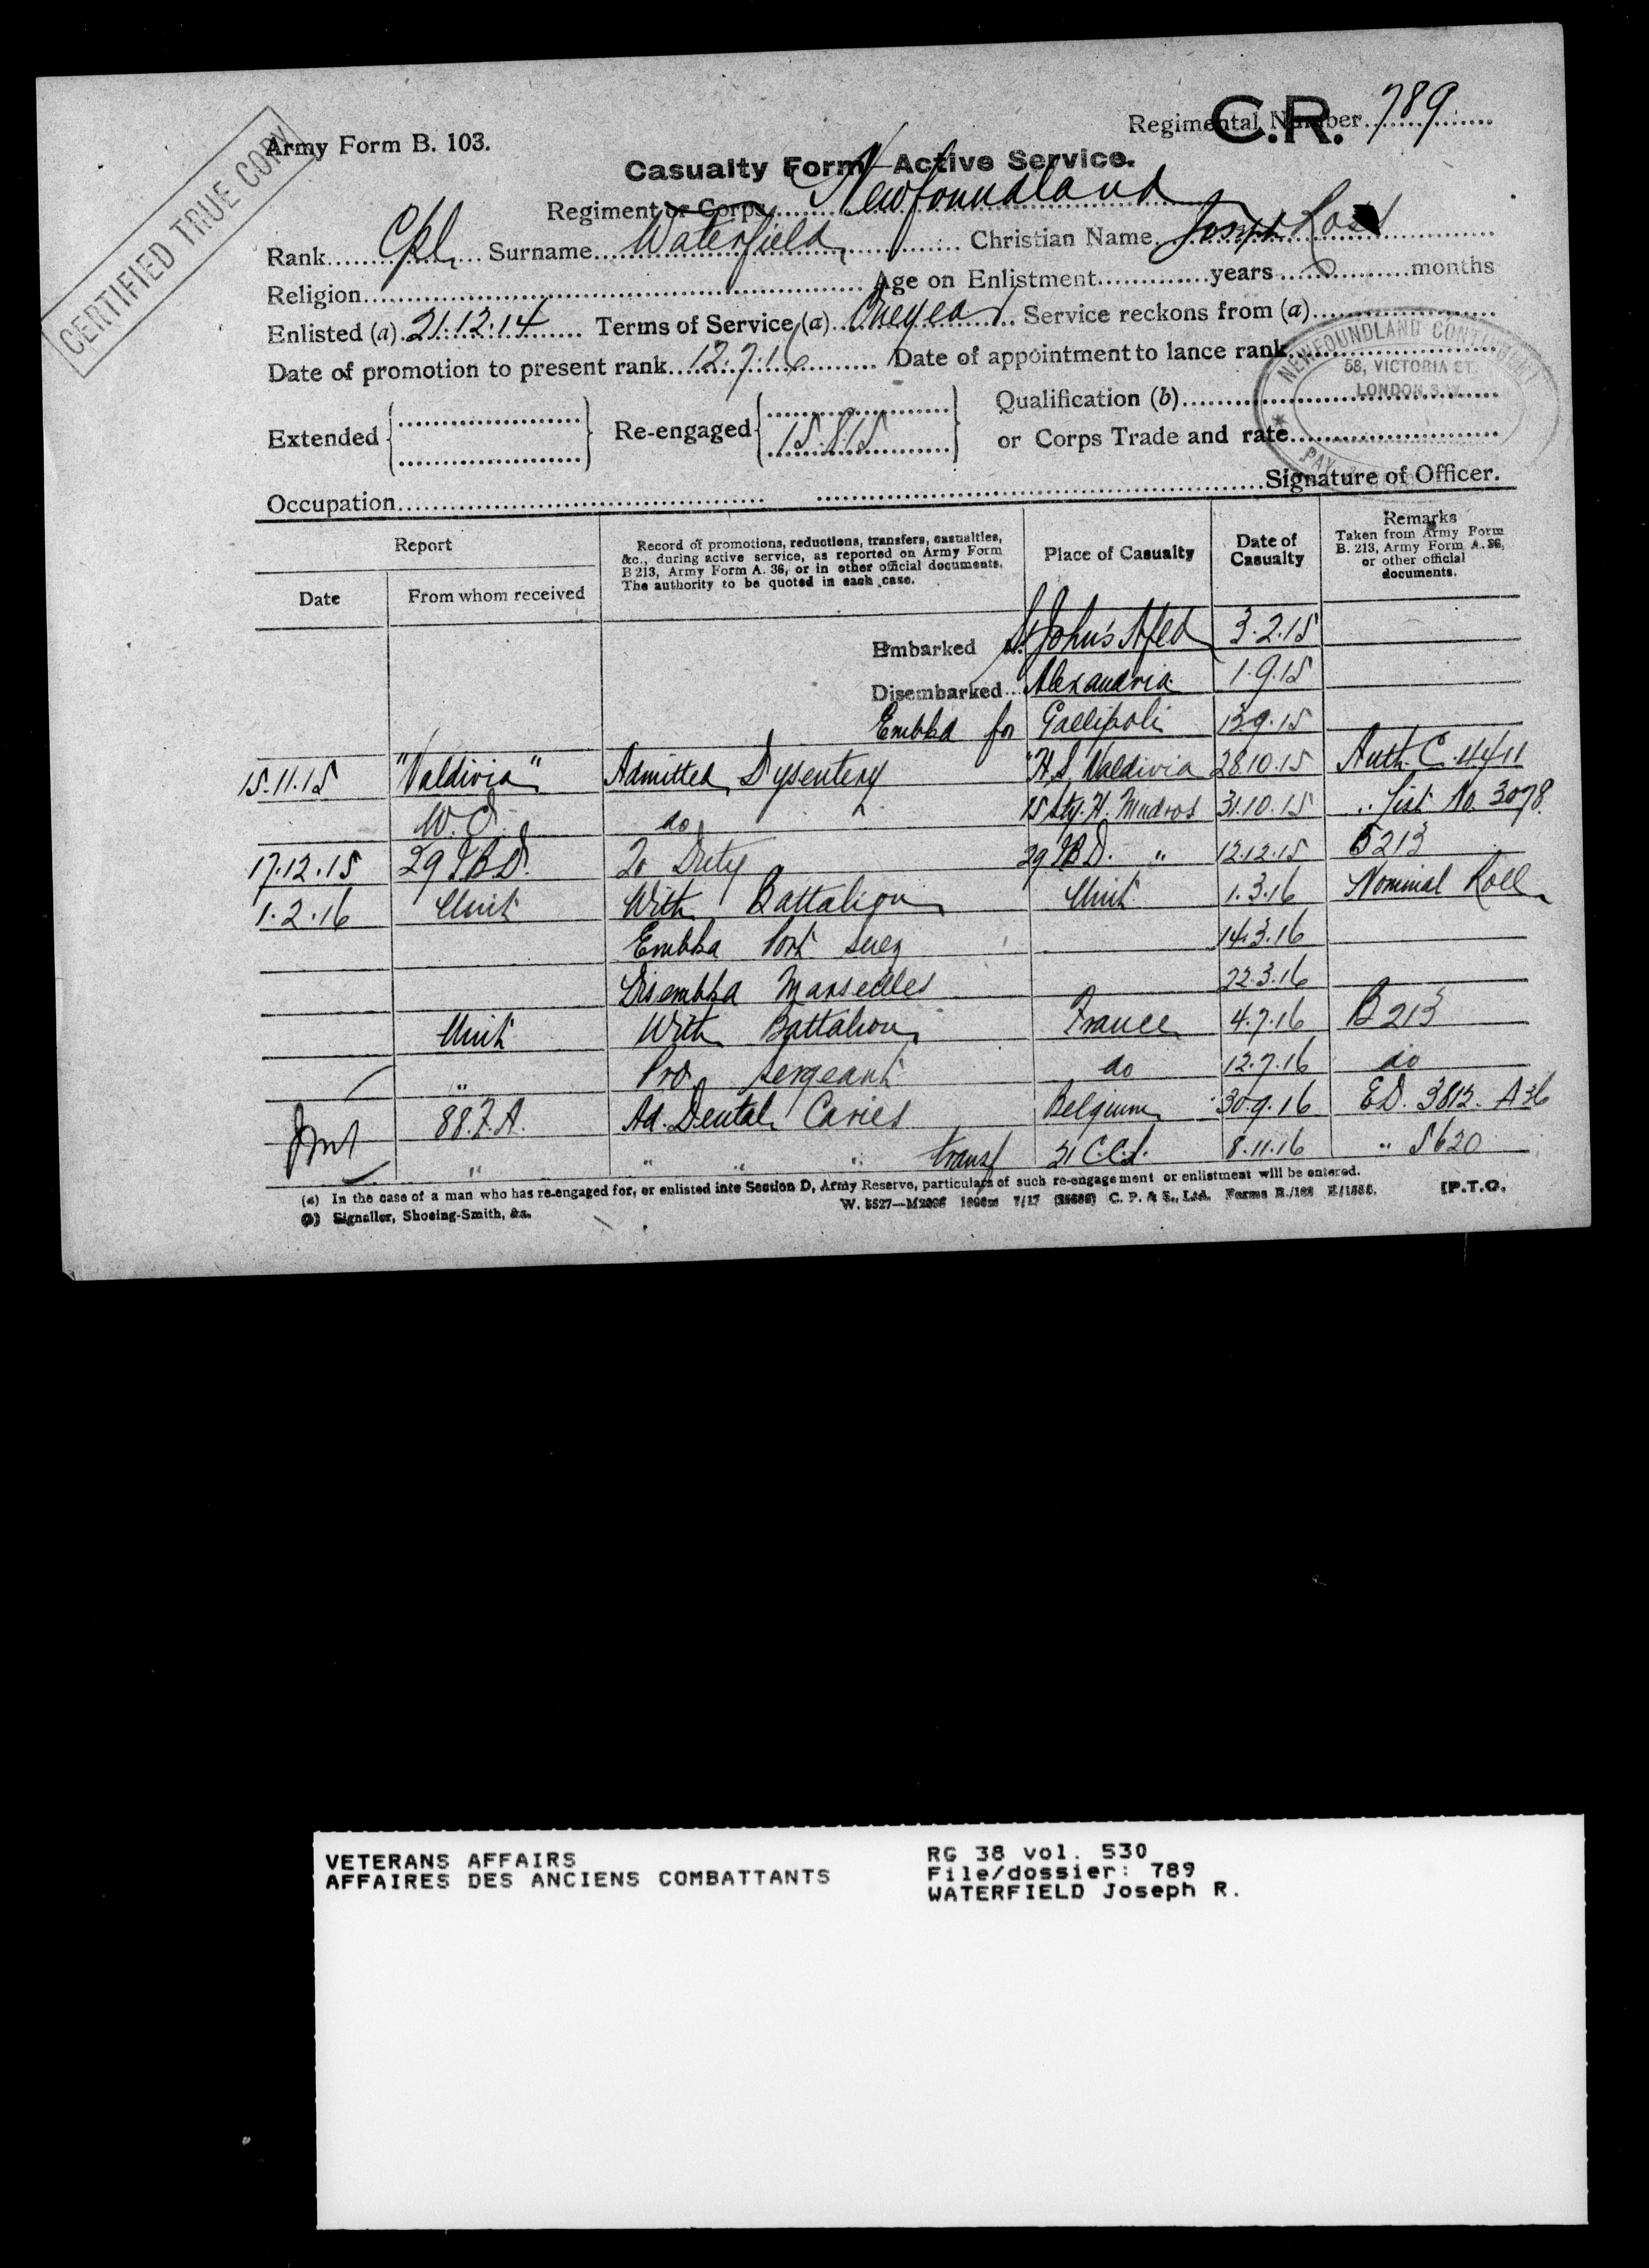 CERTIFIED TRUE COPY
Army Form B. 103.
C.R.
Regimental Number 789
Casualty Form—Active Service.
Regiment or Corps Newfoundland
Rank Cpl. Surname Waterfield Christian Name Joseph Ross
Religion Age on Enlistment years months
Enlisted (a) 21.12.14 Terms of Service (a) One year Service reckons from (a)
Date of promotion to present rank 12.7.16 Date of appointment to lance rank
NEWFOUNDLAND CONTINGENT
58, VICTORIA ST.
LONDON S.W.
PAY &
Extended Re-engaged 15.8.15 Qualification (b)
or Corps Trade and rate
Occupation Signature of Officer.
Report
Date
From whom received
Record of promotions, reductions, transfers, casualties,
&c., during active service, as reported on Army Form
B 213, Army Form A. 36, or in other official documents.
The authority to be quoted in each case.
Place of Casualty
Date of
Casualty
Remarks
Taken from Army Form
B. 213, Army Form A. 36,
or other official
documents.
Embarked St John's Nfld 3.2.15
Disembarked Alexandria 1.9.15
Embkd for Gallipoli 13.9.15
15.11.15 "Valdivia" Admitted Dysentery "H.S. Valdivia 28.10.15 Auth. C. 4411
W.O. do 15 Sty. H. Mudros 31.10.15 " List No 3078
17.12.15 29 I.B.D. To Duty 29 I B D. " 12.12.15 B213
1.2.16 Unit With Battalion Unit 1.3.16 Nominal Roll
Embkd Port Suez 14.3.16
Disembkd Marseilles 22.3.16
Unit With Battalion France 4.7.16 B 213
" Pro. Sergeant do 12.7.16 do
88.F.A. Ad. Dental Caries Belgium 30.9.16 ED. 3812. A36
" " " " transf 21 C.C.S. 8.11.16 " 5620
(a) In the case of a man who has re-engaged for, or enlisted into Section D, Army Reserve, particulars of such re-engagement or enlistment will be entered.
(b) Signaller, Shoeing-Smith, &c.
W. 5527—M2006 7/17 C. P. & S., Ltd. Forms
[P.T.O.
VETERANS AFFAIRS
AFFAIRES DES ANCIENS COMBATTANTS
RG 38 vol. 530
File/dossier: 789
WATERFIELD Joseph R.